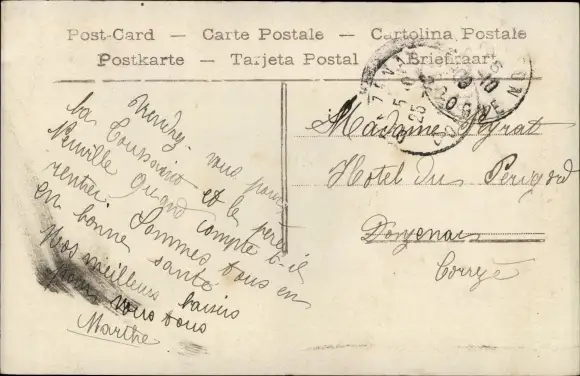 Post-Card — Carte Postale — Cartolina Postale
Postkarte — Tarjeta Postal — Briefkaart
Viendrez-vous pour
la Toussaint et le père
Neuville quand compte t-il
rentrer. Sommes tous en
en bonne santé
Nos meilleurs baisers
pour vous tous
Marthe
Madame Peyrat
Hotel du Périgord
Donzenac
Corrèze